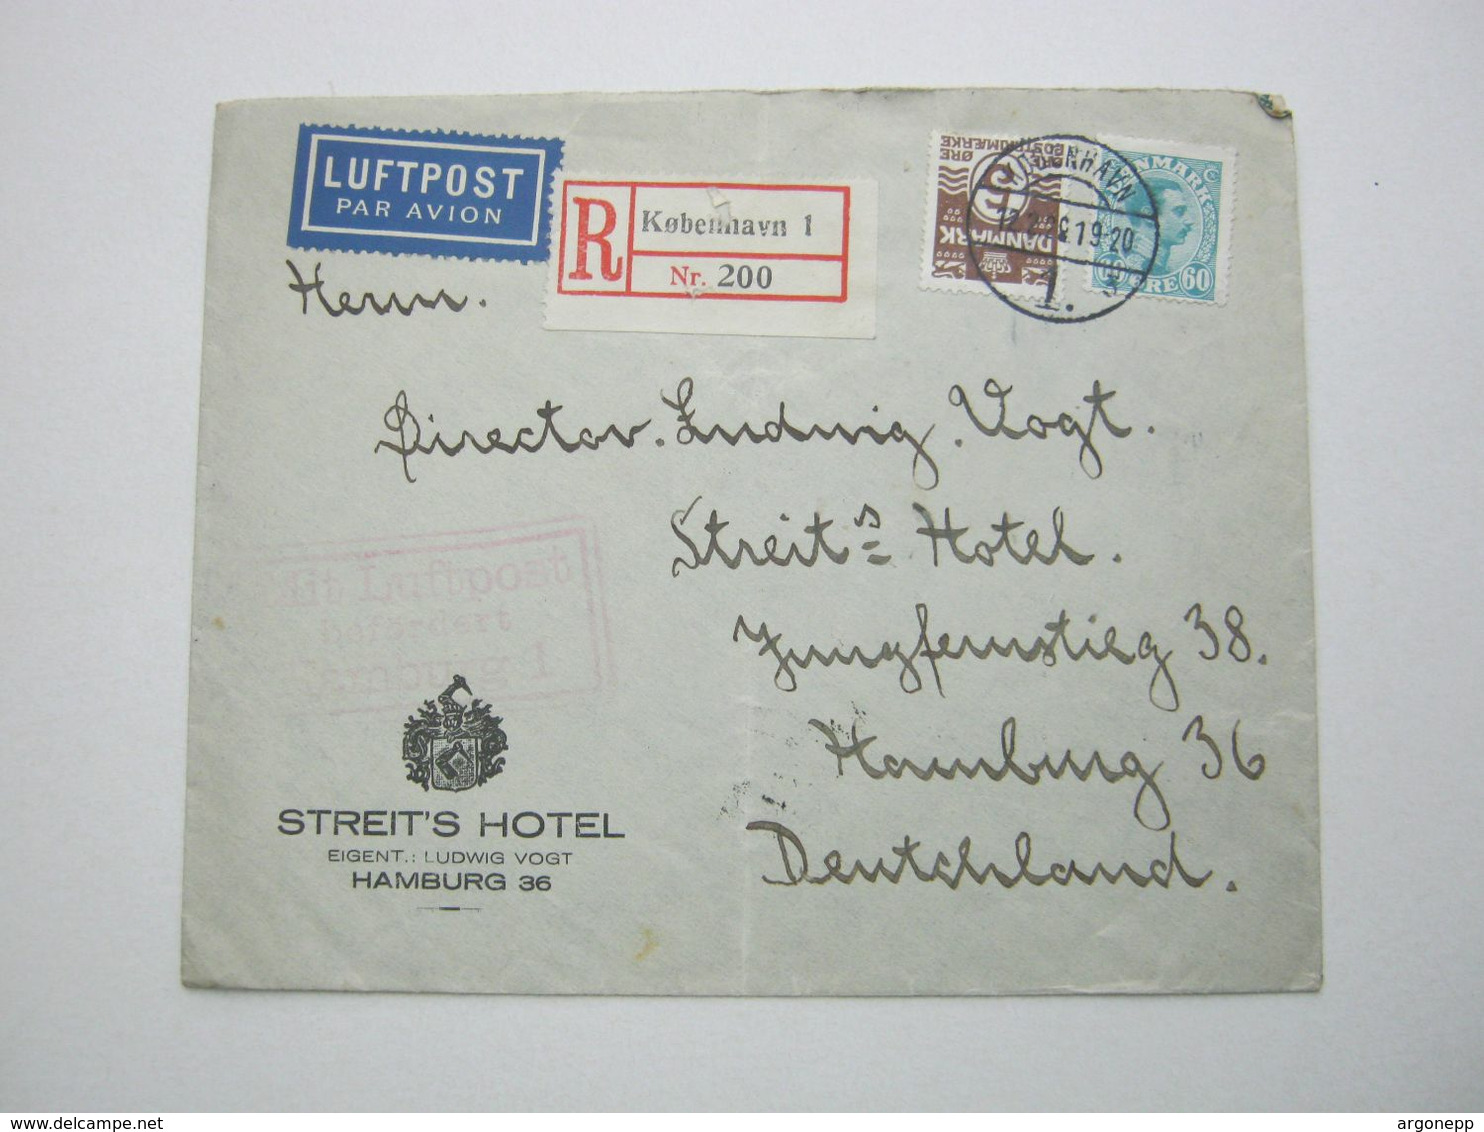 LUFTPOST
PAR AVION
R
København 1
Nr. 200
DANMARK
POSTFRIMÆRKE
ØRE
ØRE
KØBENHAVN
19-20
1.
60
ØRE
60
Herrn.
Director. Ludwig. Vogt.
Streit's Hotel.
Jungfernstieg 38.
Hamburg 36
Deutchland.
Mit Luftpost
befördert
Hamburg 1
STREIT'S HOTEL
EIGENT.: LUDWIG VOGT
HAMBURG 36
www.delcampe.net
argonepp